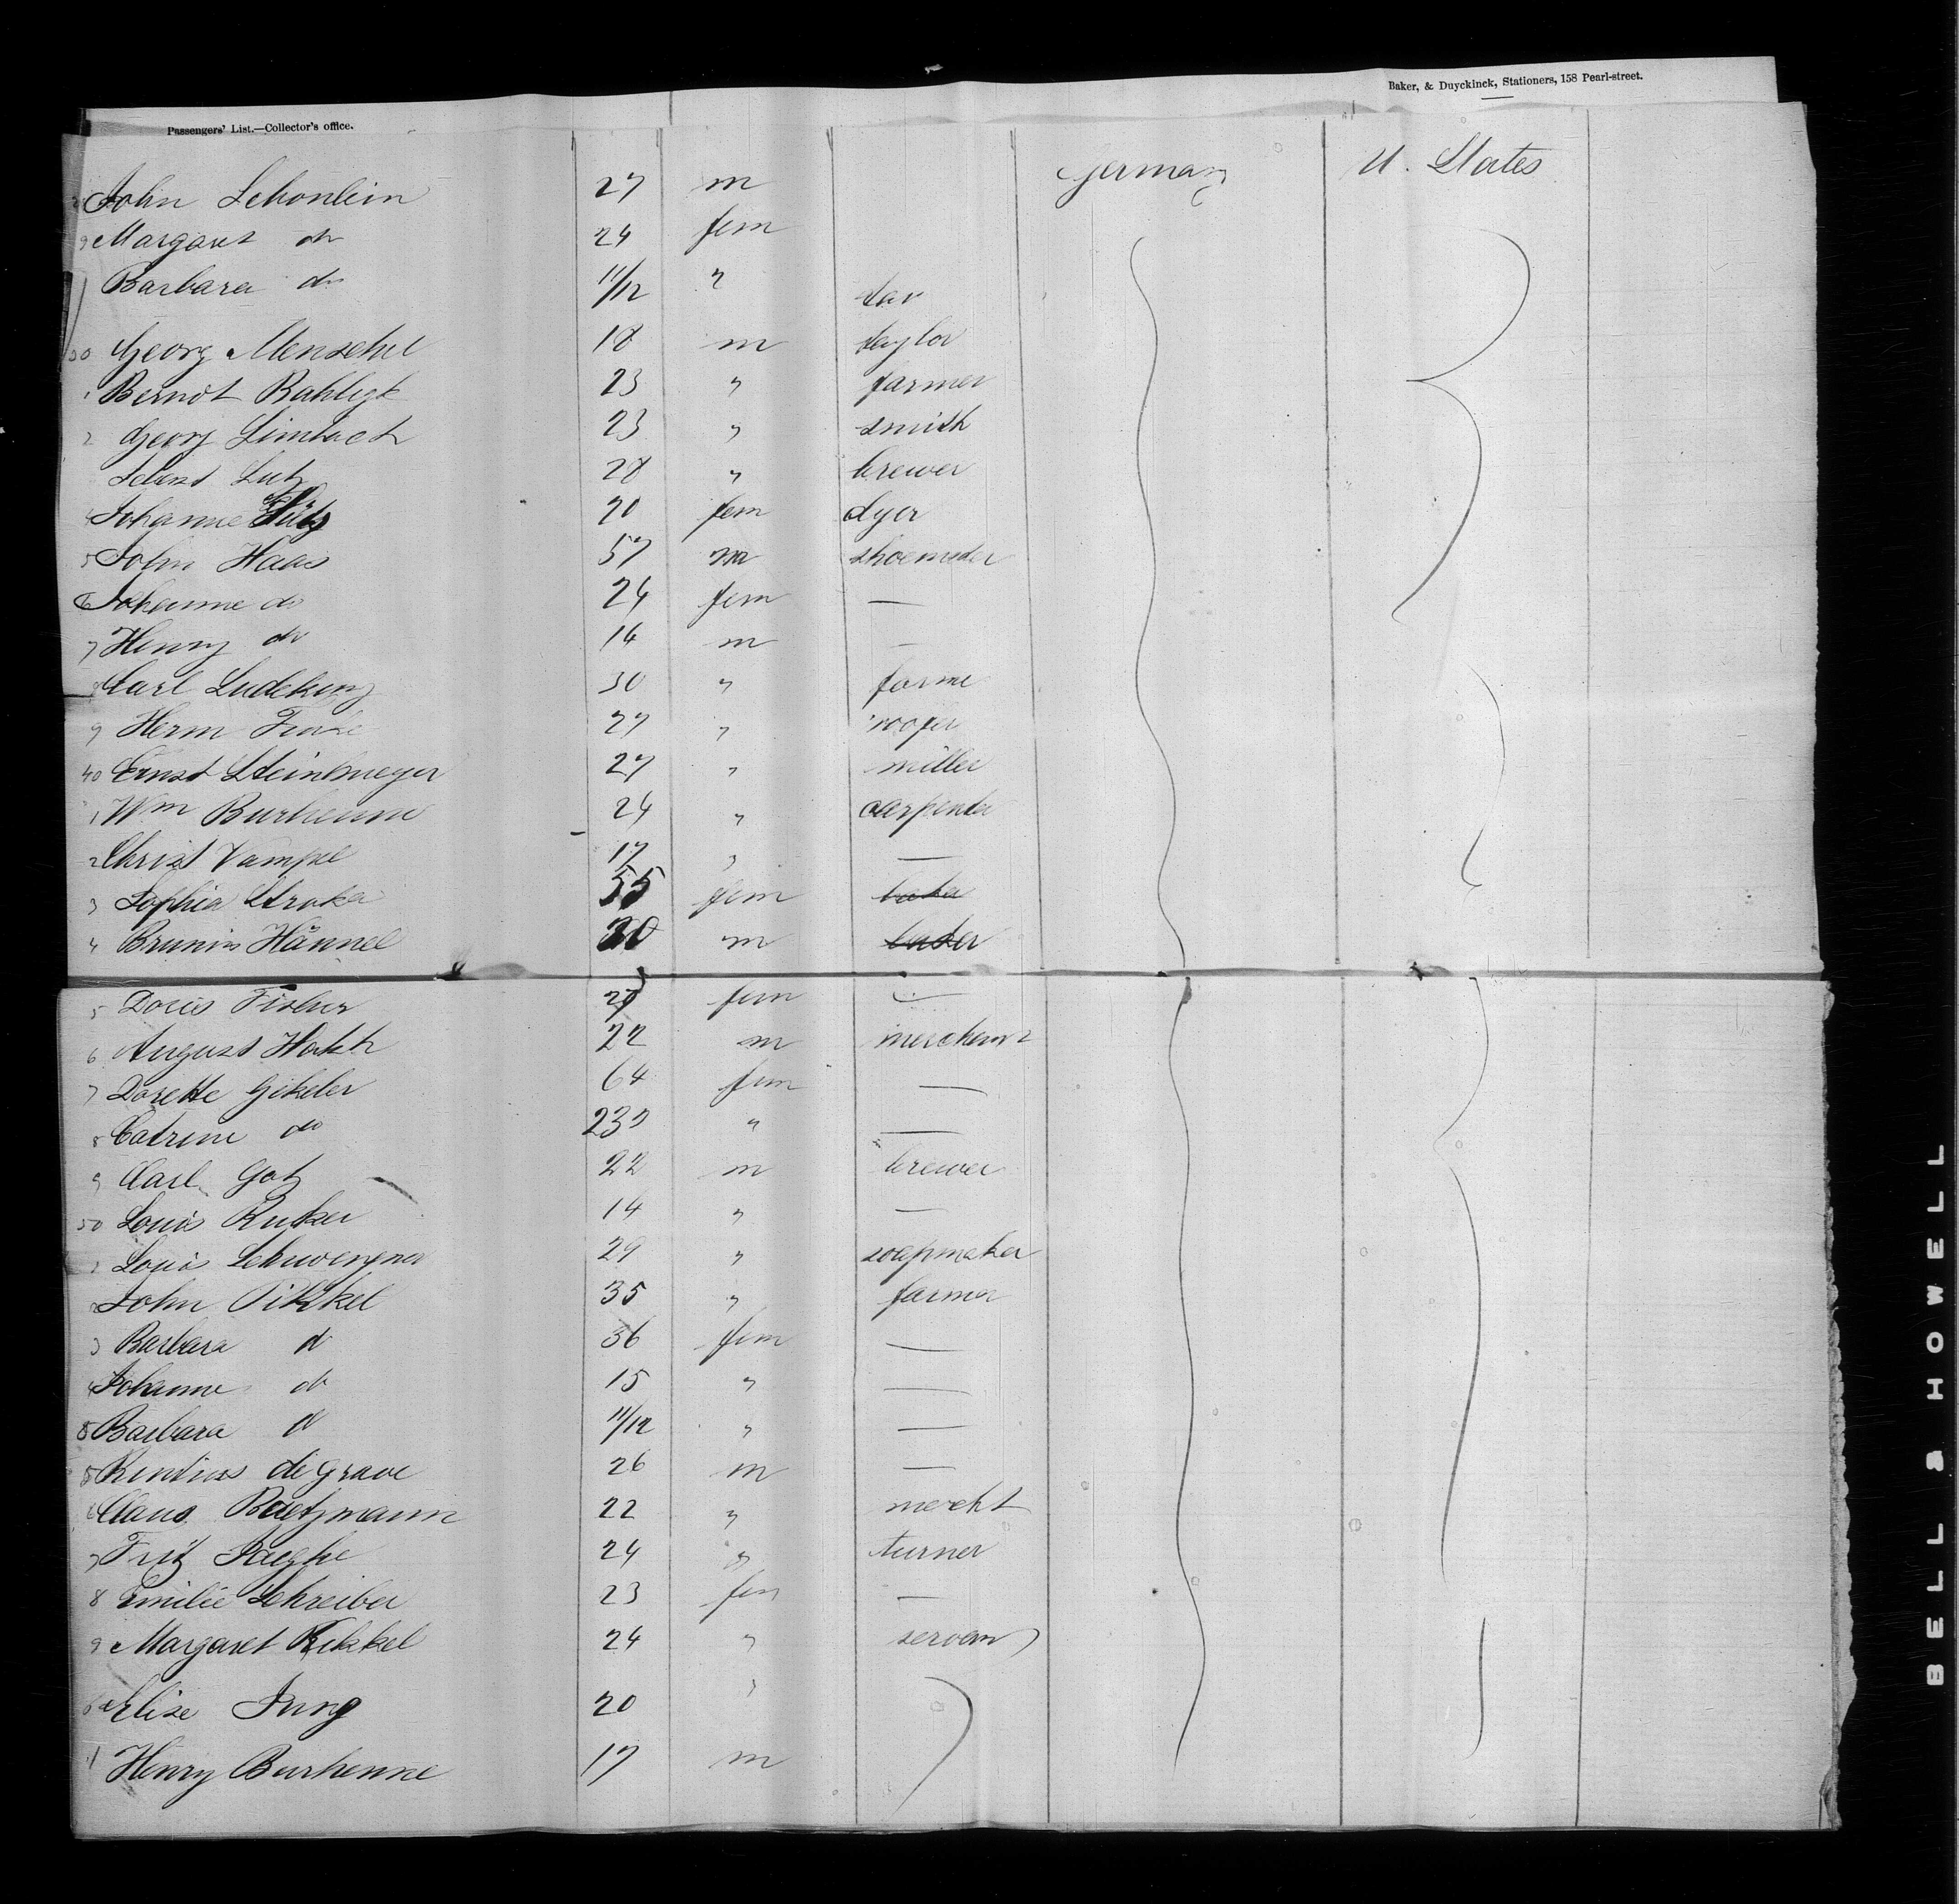 Baker, & Duyckinck, Stationers, 158 Pearl-street.
Passengers' List.—Collector's office.
John Schonlein 27 m Germany U. States
9 Margaret do 24 fem
Barbara do 11/12 "
30 Georg Menschel 18 m taylor
1 Berndt 23 " farmer
2 Georg Limbach 23 " smith
Lutz 28 " brewer
4 Johanne 20 fem dyer
5 John Haas 57 m
6 Johanne do 24 fem —
7 Henry do 14 m —
8 Carl Ludeking 30 " farme
9 Herm 27 "
40 Ernst Steinkmeyer 27 " miller
1 Wm Burhenne 24 " carpenter
2 Christ Vampel 17 " —
3 Sophia 55 fem
4 Hånnel 30 m
5 Doris Fisher fem —
6 August Hakh 22 m merchant
7 Dorette Gikeler 64 fem —
8 Catrine do 23 " —
9 Carl Gotz 22 m brewer
50 Louis Rusker 14 " —
1 Louis 29 " soapmaker
2 John Pikkel 35 " farmer
3 Barbara do 36 fem —
4 Johanne do 15 " —
5 Barbara do 11/12 " —
5 de Grave 26 m —
6 Claus Baetzmann 22 " mercht
7 Fritz 24 " turner
8 Emilie Schreiber 23 fem —
9 Margaret Kikkel 24 " servant
60 Elise Jung 20 "
1 Henry Burhenne 17 m
BELL & HOWELL